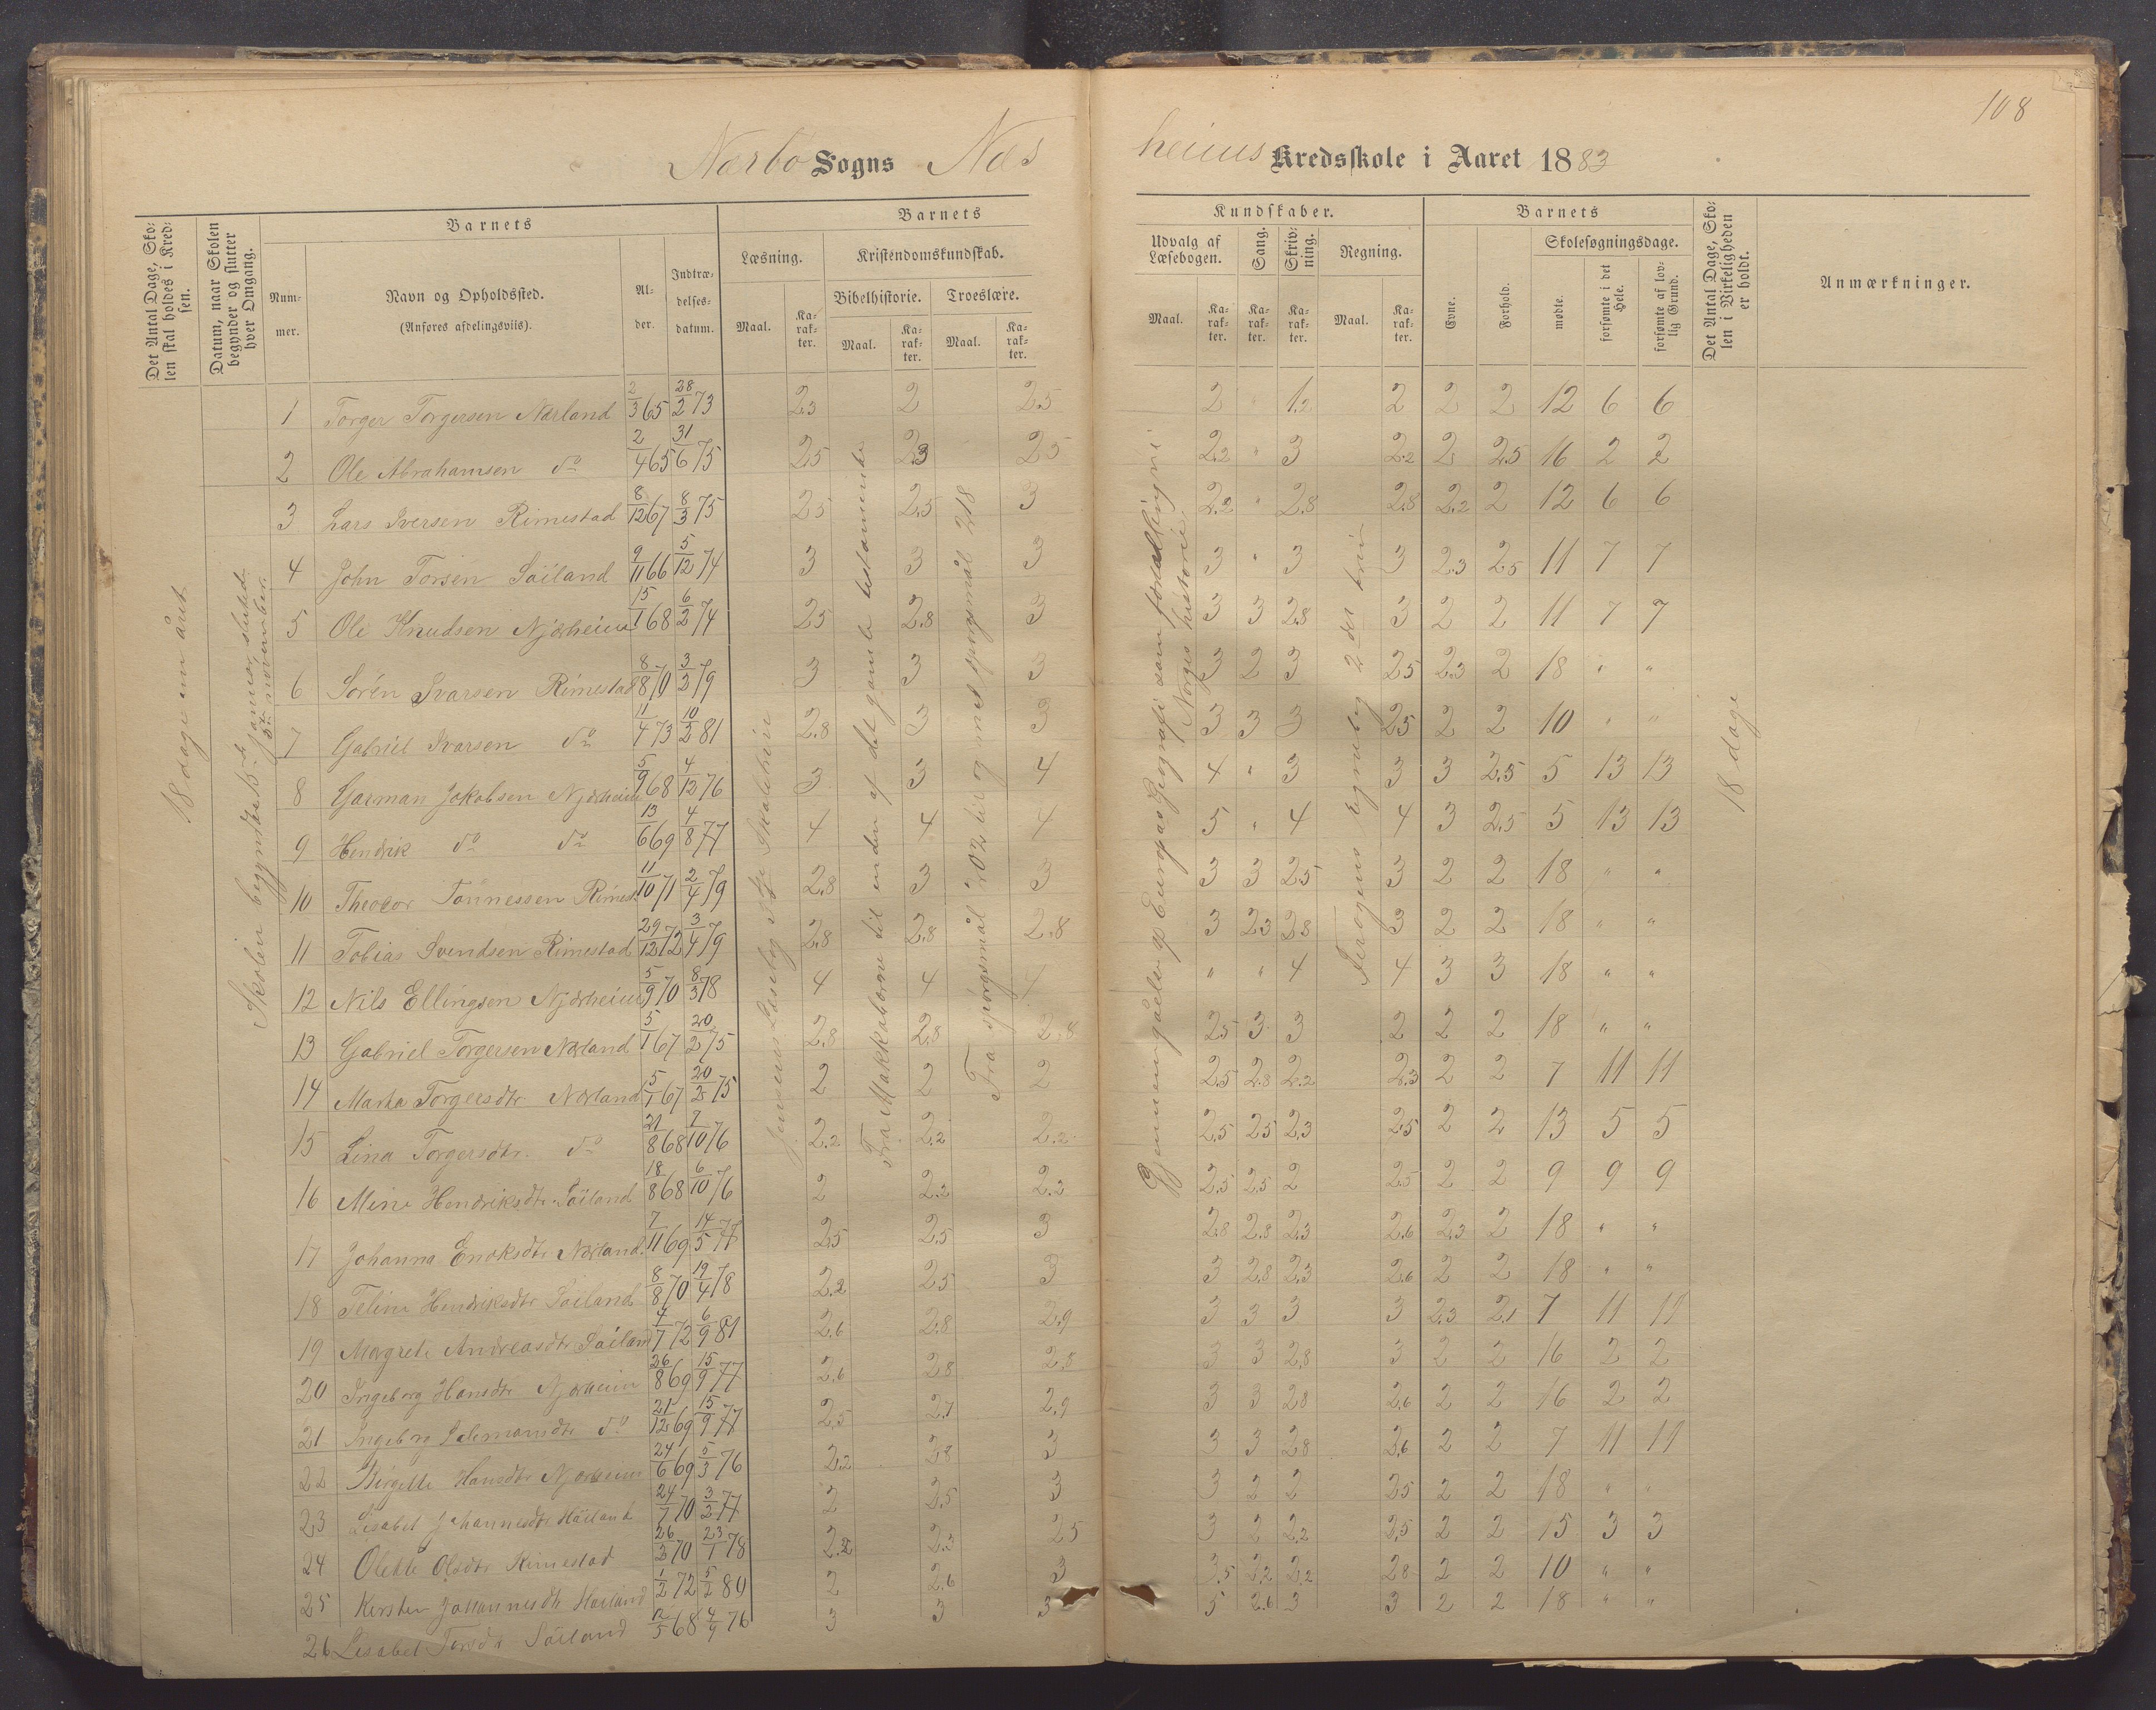 108
Nærbø Sogns Næs
heims Kredsskole i Aaret 1883
Det Antal Dage, Sko-
len skal holdes i Kred-
sen.
Datum, naar Skolen
begynder og slutter
hver Omgang.
Barnets
Num-
mer.
Navn og Opholdssted.
(Anføres afdelingsviis).
Al-
der.
Indtræ-
delses-
datum.
Barnets
Læsning.
Kristendomskundskab.
Bibelhistorie.
Troeslære.
Maal.
Ka-
rak-
ter.
Maal.
Ka-
rak-
ter.
Maal.
Ka-
rak-
ter.
Kundskaber.
Udvalg af
Læsebogen.
Sang.
Skriv-
ning.
Regning.
Maal.
Ka-
rak-
ter.
Ka-
rak-
ter.
Ka-
rak-
ter.
Maal.
Ka-
rak-
ter.
Barnets
Evne.
Forhold.
Skolesøgningsdage.
mødte.
forsømte i det
Hele.
forsømte af lov-
lig Grund.
Det Antal Dage, Sko-
len i Virkeligheden
er holdt.
Anmærkninger.
18 dage om året
Skolen begyndte
januar, sluttede
november.
Jensens Læsebog
Fra Makkabæerne til enden af det gamle testamente
Fra spørgsmål 202 til og med spørgsmål 218
Norges historie.
18 dage
1 Torger Torgersen Nærland 2/3 65 28/2 73 2.3 2 2.5 2 " 1.2 2 2 2 12 6 6
2 Ole Abrahamsen do 2/4 65 31/6 75 2.5 2.3 2.5 2.2 " 3 2.2 2 2.5 16 2 2
3 Lars Iversen Rimestad 8/12 67 8/3 75 2.5 2.5 3 2.2 " 2.8 2.8 2.2 2 12 6 6
4 John Torsen Söiland 9/11 66 5/12 74 3 3 3 3 " 3 3 2.3 2.5 11 7 7
5 Ole Knudsen Njærheim 15/1 68 6/2 74 2.5 2.8 3 3 3 2.8 3 2 2 11 7 7
6 Sören Ivarsen Rimestad 8/8 70 3/3 79 3 3 3 3 2 3 2.5 2.3 2 18 " "
7 Gabriel Ivarsen do 11/4 73 10/3 81 2.8 3 3 3 3 3 2.5 2 2 10 " "
8 Garman Jakobsen Njærheim 5/9 68 4/12 76 3 3 4 4 " 3 3 3 2.5 5 13 13
9 Hendrik do do 13/6 69 4/8 77 4 4 4 5 " 4 4 3 2.5 5 13 13
10 Theodor Tönnessen Rimest. 11/10 71 2/4 79 2.8 3 3 3 3 2.5 3 2 2 18 " "
11 Tobias Svendsen Rimestad 29/12 72 3/4 79 2.8 2.8 2.8 3 2.3 2.8 3 2 2 18 " "
12 Nils Ellingsen Njærheim 5/9 70 8/3 78 4 4 4 " " 4 4 3 3 18 " "
13 Gabriel Torgersen Nærland 5/1 67 20/2 75 2.8 2.8 2.8 2.5 3 3 2 2 2 18 " "
14 Marta Torgersdtr Nærland 5/1 67 20/2 75 2 2 2 2.5 2.8 2.2 2.3 2 2 7 11 11
15 Lina Torgersdtr. do 21/8 68 7/10 76 2.2 2.2 2.2 2.5 2.5 2.3 2.5 2 2 13 5 5
16 Mine Hendriksdtr Söiland 18/8 68 6/10 76 2 2.2 2.2 2.5 2.5 2 2.5 2 2 9 9 9
17 Johanna Enoksdtr Nærland. 7/11 69 14/5 77 2.5 2.5 3 2.8 2.8 2.3 2.6 2.3 2 18 " "
18 Teline Hendriksdtr Söiland 8/8 70 19/4 78 2.2 2.5 3 3 2.8 2.3 2.6 2 2 18 " "
19 Margrete Andreasdtr Söiland 4/7 72 6/9 81 2.6 2.8 2.9 3 3 3 3 2.3 2.1 7 11 11
20 Ingeborg Hansdtr Njærheim 26/8 69 15/9 77 2.6 2.8 2.8 3 3 2.8 3 2 2 16 2 2
21 Ingeborg Salemonsdtr do 21/12 69 15/9 77 2.5 2.7 2.9 3 3 2.8 2.6 2 2 16 2 2
22 Birgitte Hansdtr Njærheim 24/6 69 5/3 76 2.2 2.8 3 3 3 2.8 2.6 2 2 7 11 11
23 Lisabet Johannesdtr Höiland 24/7 70 3/2 77 2 2.5 3 3 2 2 2.5 2 2 18 " "
24 Olette Olsdtr Rimestad 26/3 70 23/1 78 2.2 2.3 2.5 3 2 2.2 2.5 2 2 15 3 3
25 Kirsten Johannesdtr Höiland 1/2 72 5/2 80 2 2.6 3 3.5 2.2 2.2 2.8 2 2 10 " "
26 Lisabet Torsdtr Söiland 12/5 68 4/9 76 3 3 3 5 2.6 3 3 2 2 18 " "